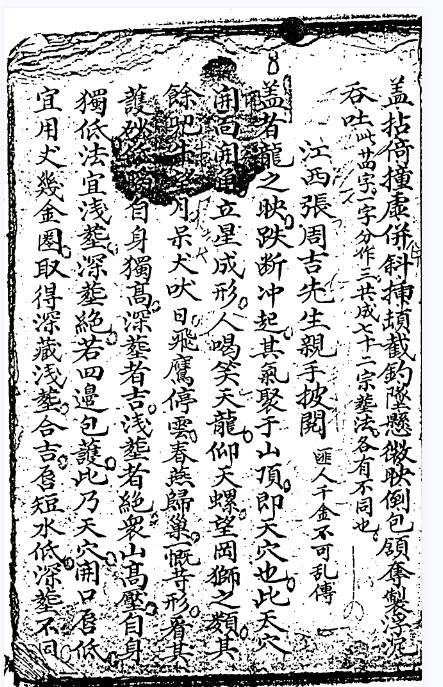 盖拈倚撞虛併斜揷頓截釣墜懸微映倒包領奪製浮沉
吞吐此廿四字一字分作三共成七十二宗塟法各有不同也
江西張周吉先生親手披閱 匪人千金不可乱傳
盖者龍之映跌断冲起其氣聚于山頂即天穴也此天穴
開口開 立星成形人喝笑天龍仰天螺望岡獅之類其
餘 月呆犬吠日飛鷹停雲春燕歸巢 形看其
護 自身獨高深塟者吉浅塟者絶衆山高壓自身
獨低法宜浅塟深塟絶若四邊包護此乃天穴開口唇低
宜用丈幾金圏取得深藏浅塟合吉唇短水低深塟不同